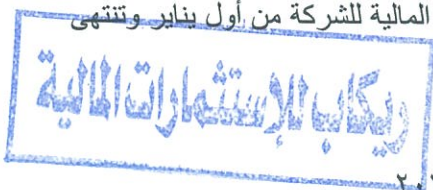 المالية للشركة من أول يناير وتنتهى
ريكاب للإستثمارات المالية